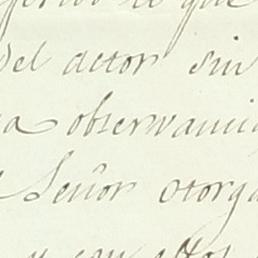 que
del actor sin
a observanci
Señor otorga
y con